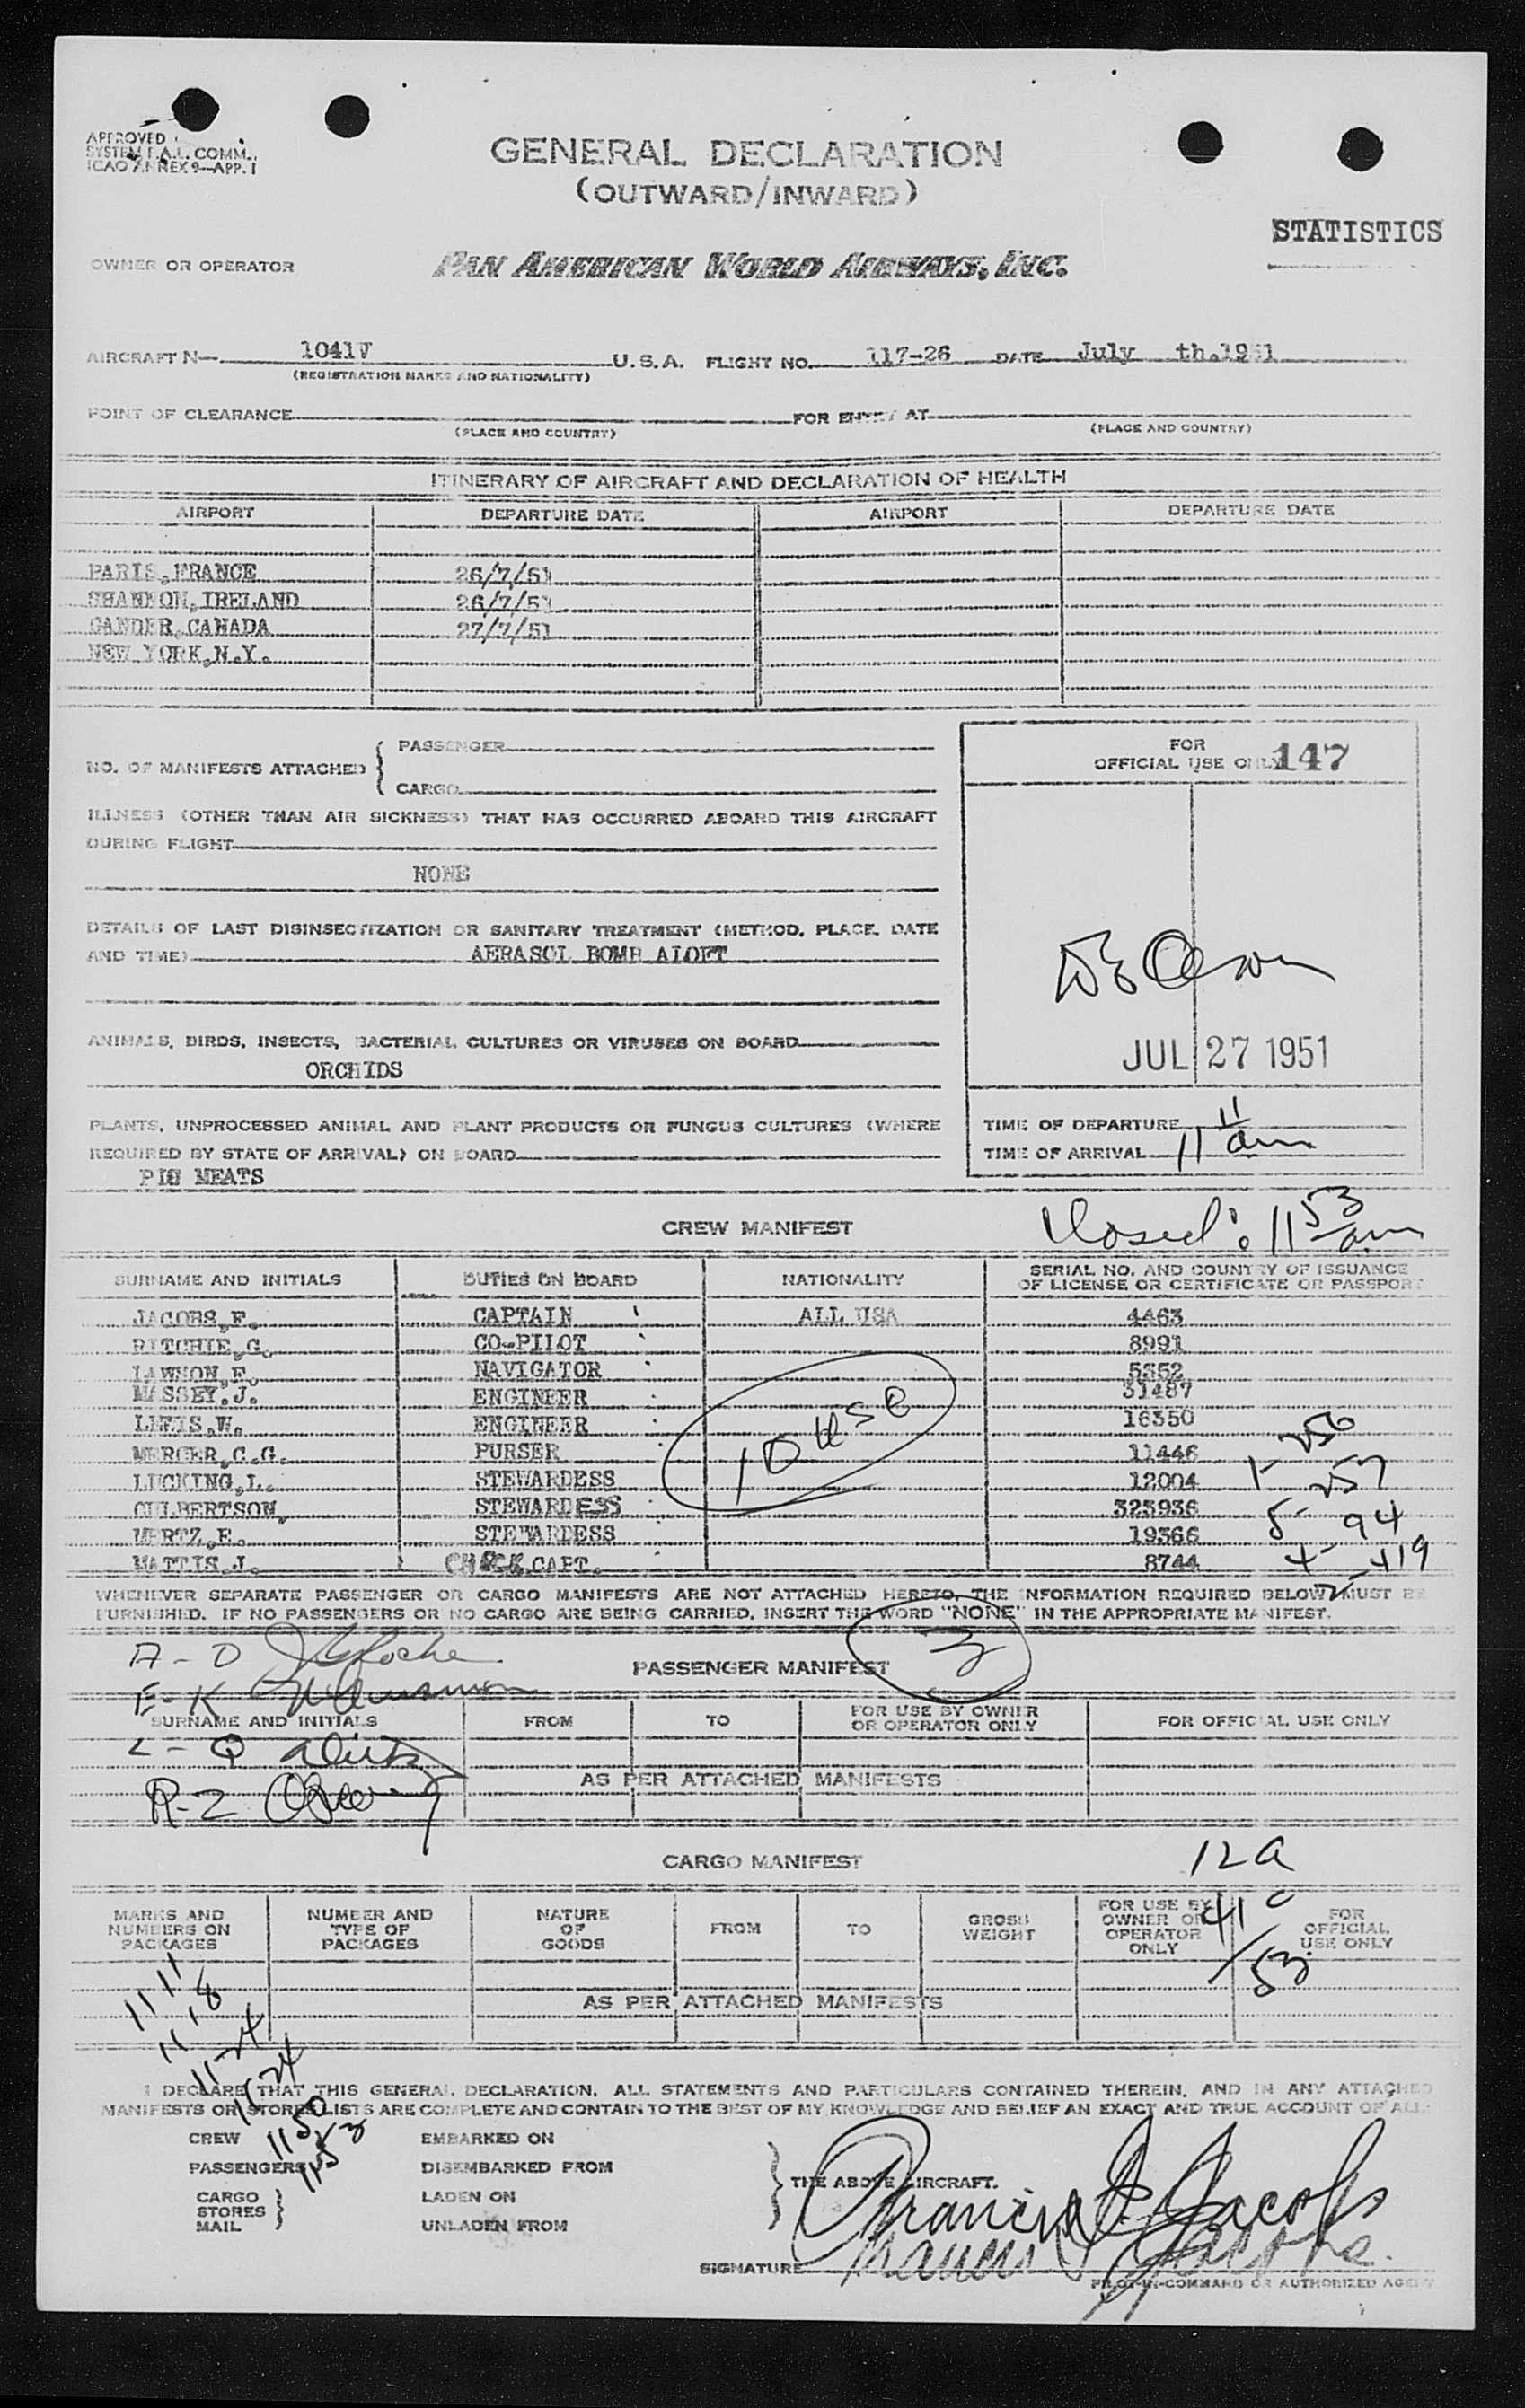 APPROVED
SYSTEM F.A.L. COMM.,
ICAO ANNEX 9—APP. I
GENERAL DECLARATION
(OUTWARD/INWARD)
STATISTICS
OWNER OR OPERATOR PAN AMERICAN WORLD AIRWAYS, INC.
AIRCRAFT N— 1041V U.S.A. FLIGHT NO. 117-26 DATE July th.1951
(REGISTRATION MARKS AND NATIONALITY)
POINT OF CLEARANCE FOR ENTRY AT
(PLACE AND COUNTRY) (PLACE AND COUNTRY)
ITINERARY OF AIRCRAFT AND DECLARATION OF HEALTH
AIRPORT DEPARTURE DATE AIRPORT DEPARTURE DATE
PARIS, FRANCE 26/7/51
SHANNON, IRELAND 26/7/51
GANDER, CANADA 27/7/51
NEW YORK, N.Y.
NO. OF MANIFESTS ATTACHED { PASSENGER
CARGO
FOR
OFFICIAL USE ONLY 147
ILLNESS (OTHER THAN AIR SICKNESS) THAT HAS OCCURRED ABOARD THIS AIRCRAFT
DURING FLIGHT
NONE
DETAILS OF LAST DISINSECTIZATION OR SANITARY TREATMENT (METHOD, PLACE, DATE
AND TIME) AERASOL BOMB ALOFT
ANIMALS, BIRDS, INSECTS, BACTERIAL CULTURES OR VIRUSES ON BOARD
ORCHIDS
JUL 27 1951
PLANTS, UNPROCESSED ANIMAL AND PLANT PRODUCTS OR FUNGUS CULTURES (WHERE
REQUIRED BY STATE OF ARRIVAL) ON BOARD
PIG MEATS
TIME OF DEPARTURE
TIME OF ARRIVAL 11 11 am
Closed: 11 53 am
CREW MANIFEST
SURNAME AND INITIALS DUTIES ON BOARD NATIONALITY SERIAL NO. AND COUNTRY OF ISSUANCE
OF LICENSE OR CERTIFICATE OR PASSPORT
JACOBS, F. CAPTAIN ALL USA 4463
RITCHIE, G. CO-PILOT 8991
LAWSON, E. NAVIGATOR 5352
MASSEY, J. ENGINEER 31487
LEWIS, W. ENGINEER 16350
MERCER, C.G. PURSER 11446
LUCKING, L. STEWARDESS 12004
CULBERTSON, STEWARDESS 323936
MERTZ, E. STEWARDESS 19366
MATTIS, J. CHECK CAPT. 8744
10 USC
1- 256
8- 257
4- 94
2- 419
WHENEVER SEPARATE PASSENGER OR CARGO MANIFESTS ARE NOT ATTACHED HERETO, THE INFORMATION REQUIRED BELOW MUST BE
FURNISHED. IF NO PASSENGERS OR NO CARGO ARE BEING CARRIED, INSERT THE WORD "NONE" IN THE APPROPRIATE MANIFEST.
A-D
E-K
3
PASSENGER MANIFEST
SURNAME AND INITIALS FROM TO FOR USE BY OWNER
OR OPERATOR ONLY FOR OFFICIAL USE ONLY
L-Q
R-Z
AS PER ATTACHED MANIFESTS
CARGO MANIFEST
12 a
41 c
53
MARKS AND
NUMBERS ON
PACKAGES NUMBER AND
TYPE OF
PACKAGES NATURE
OF
GOODS FROM TO GROSS
WEIGHT FOR USE BY
OWNER OR
OPERATOR
ONLY FOR
OFFICIAL
USE ONLY
AS PER ATTACHED MANIFESTS
11 11
11 18
11-24
11 24
11 50
11 53
I DECLARE THAT THIS GENERAL DECLARATION, ALL STATEMENTS AND PARTICULARS CONTAINED THEREIN, AND IN ANY ATTACHED
MANIFESTS OR STORES LISTS ARE COMPLETE AND CONTAIN TO THE BEST OF MY KNOWLEDGE AND BELIEF AN EXACT AND TRUE ACCOUNT OF ALL:
CREW EMBARKED ON
PASSENGERS DISEMBARKED FROM
CARGO
STORES
MAIL LADEN ON
UNLADEN FROM
THE ABOVE AIRCRAFT.
Francis J. Jacobs
SIGNATURE Francis J. Jacobs
PILOT-IN-COMMAND OR AUTHORIZED AGENT